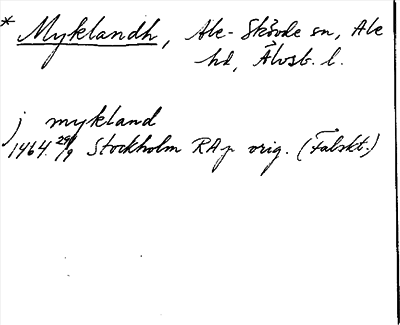 * Myklandh, Ale-Skövde sn, Ale
hd, Älvsb. l.
j mykland
1464 29/9 Stockholm RAp orig. (Falskt.)